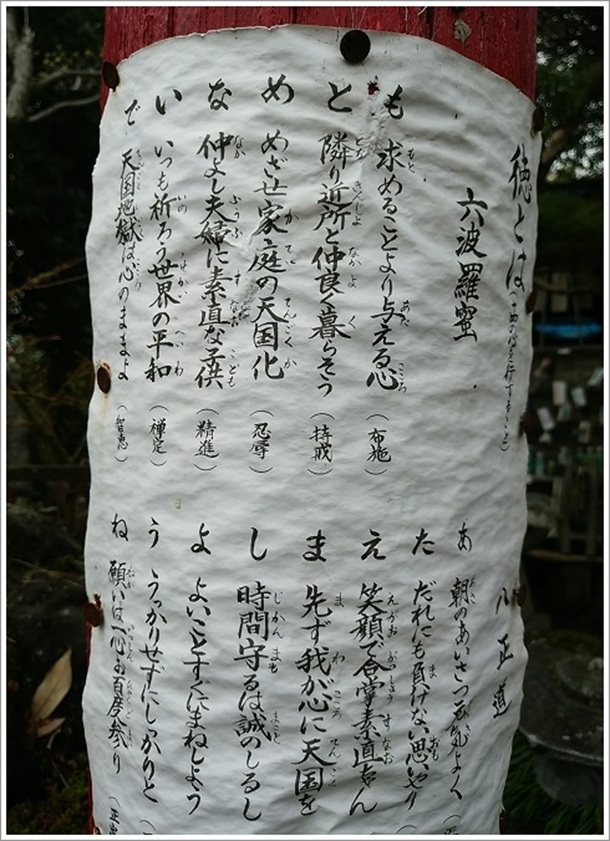 徳とは(十四の心を行ずること)
六波羅蜜
も 求めることより与える心 (布施)
と 隣り近所と仲良く暮らそう (持戒)
め めざせ家庭の天国化 (忍辱)
な 仲よし夫婦に素直な子供 (精進)
い いつも祈ろう世界の平和 (禅定)
で 天国地獄は心のままよ (智恵)
八正道
あ 朝のあいさつ元気よく
た だれにも負けない思いやり
え 笑顔で合掌素直ちゃん
ま 先ず我が心に天国を
し 時間守るは誠のしるし
よ よいことすぐにまねしよう
う うっかりせずにしっかりと
ね 願いは一心お百度参り